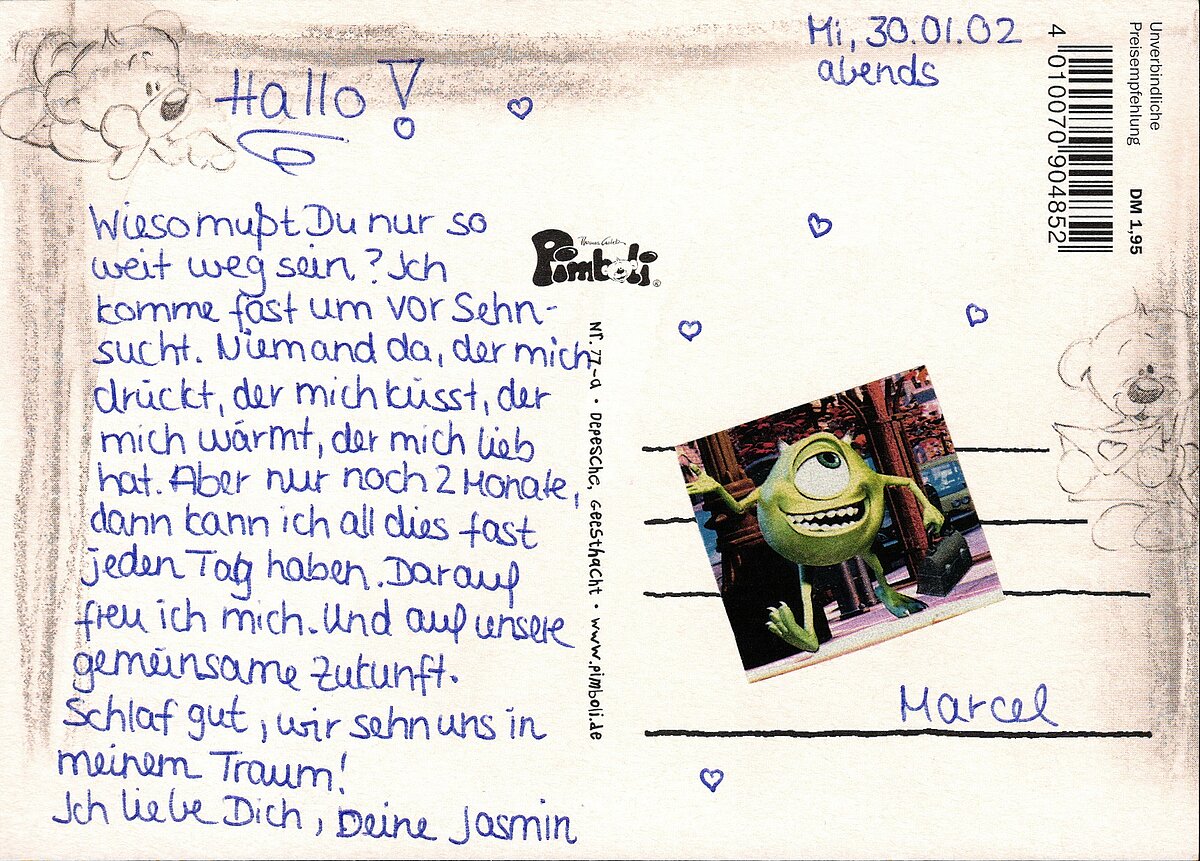 Mi, 30.01.02
abends
Hallo!
Wieso mußt Du nur so
weit weg sein? Ich
komme fast um vor Sehn-
sucht. Niemand da, der mich
drückt, der mich küsst, der
mich wärmt, der mich lieb
hat. Aber nur noch 2 Monate,
dann kann ich all dies fast
jeden Tag haben. Darauf
freu ich mich. Und auf unsere
gemeinsame Zukunft.
Schlaf gut, wir sehn uns in
meinem Traum!
Ich liebe Dich, Deine Jasmin
Pimboli ®
Nr. 77-a • Depesche, Geesthacht • www.pimboli.de
Marcel
Unverbindliche
Preisempfehlung DM 1.95
4 010070 904852